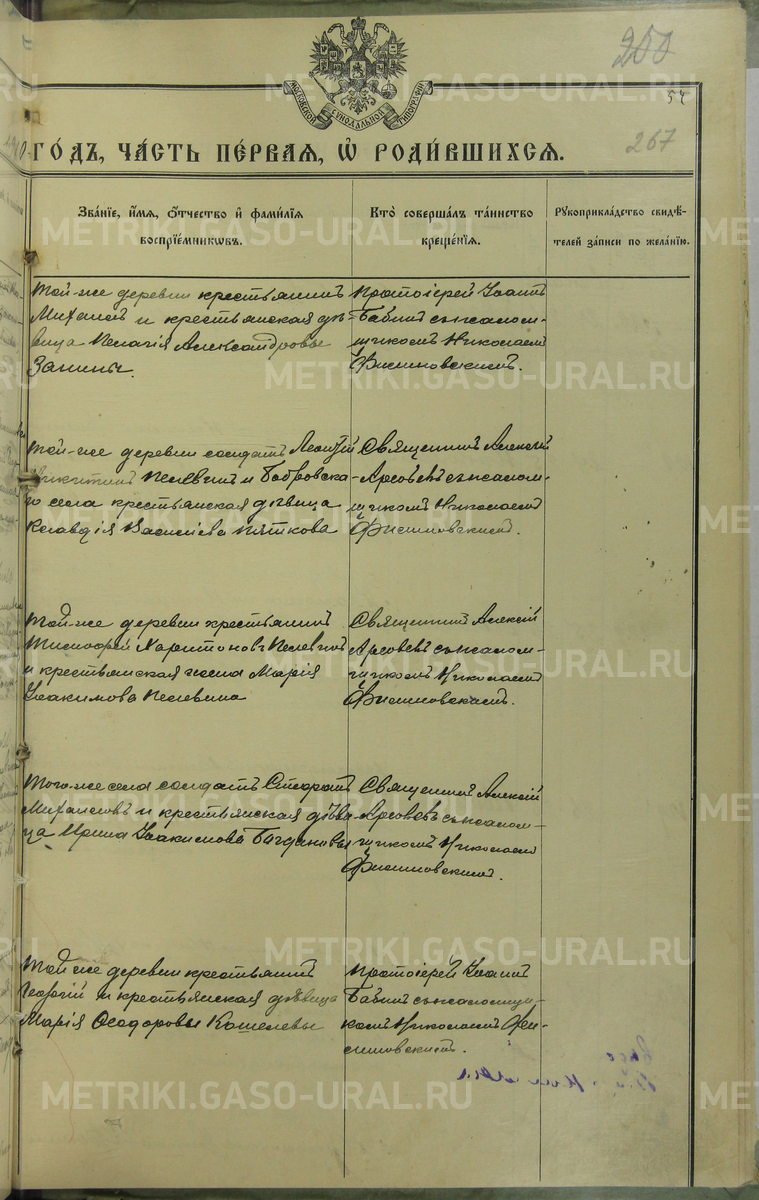 250
54
267
МОСКОВСКОЙ СѴНОДАЛЬНОЙ ТИПОГРАФІИ
ГО́ДЪ, ЧА́СТЬ ПЕ́РВАЯ, Ѡ҆ РОДИ́ВШИХСЯ.
ЗВА́НІЕ, И҆́МЯ, Ѻ҆́ТЧЕСТВО И҆ ФАМИ́ЛІЯ
ВОСПРІЕ́МНИКѠВЪ.
КТО̀ СОВЕРША́ЛЪ ТА́ИНСТВО
КРЕЩЕ́НІЯ.
РꙊКОПРИКЛА́ДСТВО СВИДѢ́-
ТЕЛЕЙ ЗА́ПИСИ ПО ЖЕЛА́НІЮ.
Той-же деревни крестьянинъ
Михаилъ и крестьянская дѣ-
вица Пелагія Александровы
Занины.
Протоіерей Іоаннъ
Бабинъ съ псалом-
щикомъ Николаемъ
Филиповскимъ.
Той-же деревни солдатъ Леонтій
Никитинъ Пелевинъ и Бобровска-
го села крестьянская дѣвица
Клавдія Василіева Пяткова
Священникъ Алексій
Арсовевъ съ псалом-
щикомъ Николаемъ
Филиповскимъ.
Той-же деревни крестьянинъ
Тимофей Харитоновъ Пелевинъ
и крестьянская жена Марія
Іоакимова Пелевина
Священникъ Алексій
Арсовевъ съ псалом-
щикомъ Николаемъ
Филиповскимъ.
Того-же села солдатъ
Михаиловъ и крестьянская дѣви-
ца Ирина Іоакимова Богдановы
Священникъ Алексій
Арсовевъ съ псалом-
щикомъ Николаемъ
Филиповскимъ.
Той же деревни крестьянинъ
Георгій и крестьянская дѣвица
Марія Ѳеодоровы Кошелевы
Протоіерей Іоаннъ
Бабинъ съ псаломщи-
комъ Николаемъ Фи-
липовскимъ.
METRIKI.GASO-URAL.RU